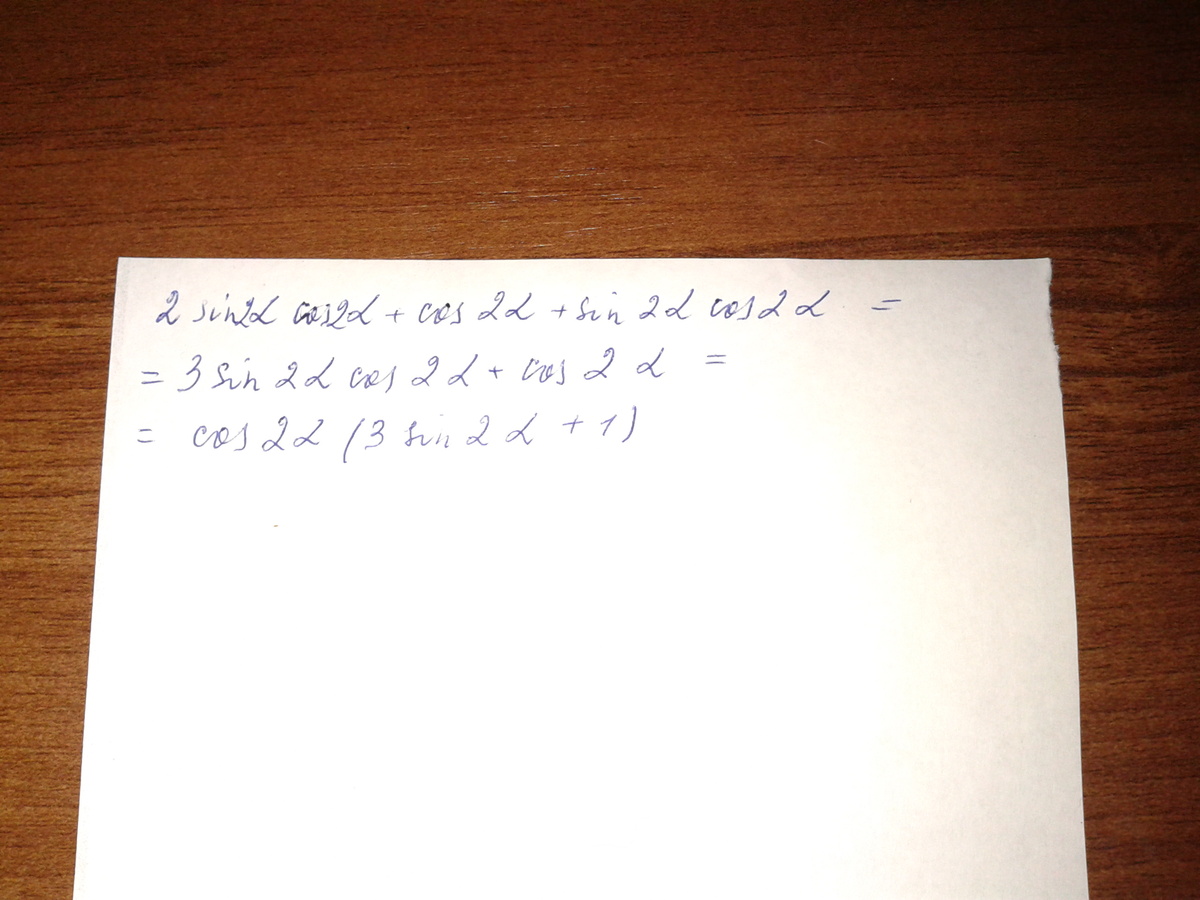 2 sin2α cos2α + cos 2α + sin 2α cos2α =
= 3 sin 2α cos 2α + cos 2 α =
= cos 2α (3 sin 2 α + 1)